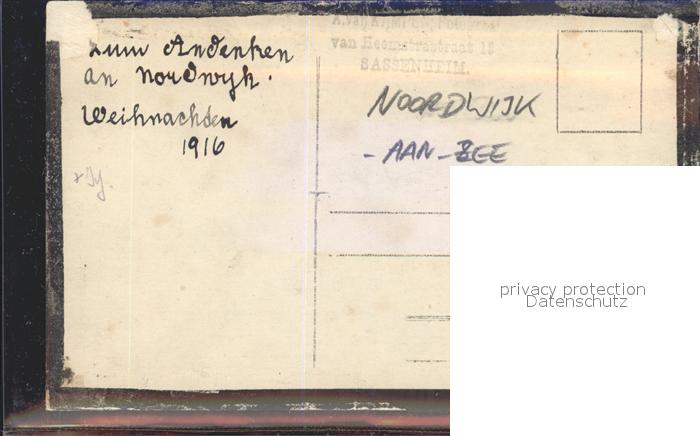 Zum Andenken
an Nordwyk.
Weihnachden
1916
van Heemstrastraat 15
SASSENHEIM.
NOORDWIJK
- AAN - ZEE
privacy protection
Datenschutz